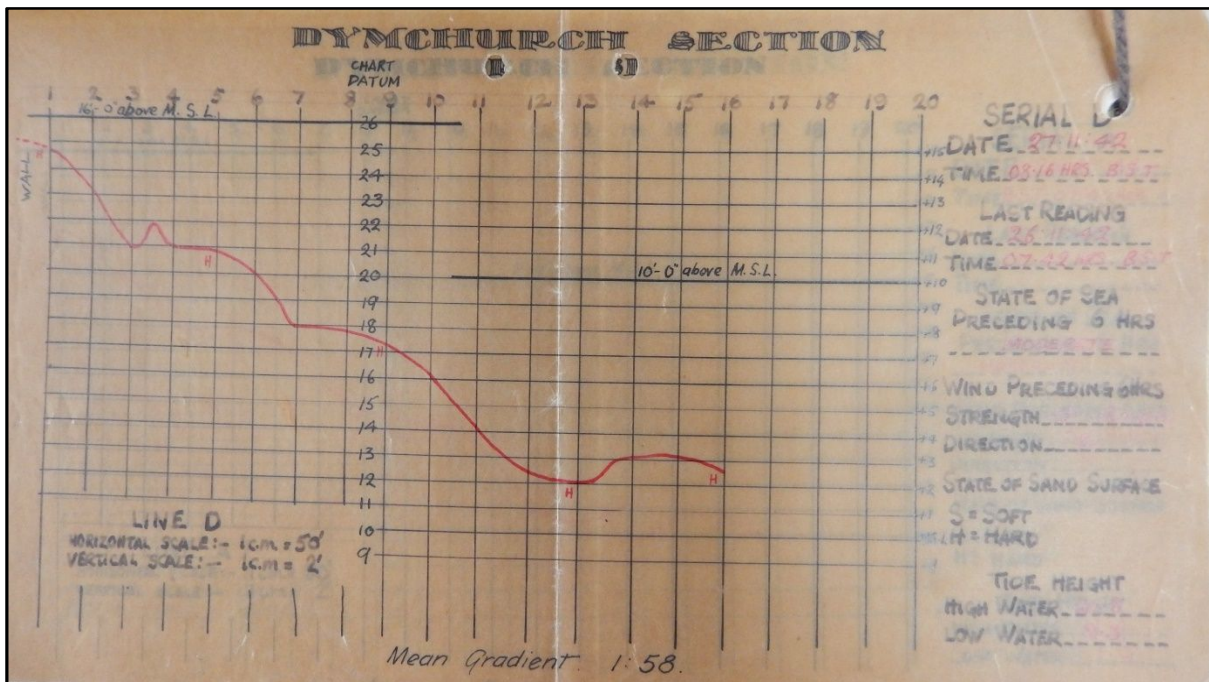 DYMCHURCH SECTION
CHART
DATUM
1 2 3 4 5 6 7 8 9 10 11 12 13 14 15 16 17 18 19 20
16'-0" above M.S.L.
26
25
24
23
22
21
20
19
18
17
16
15
14
13
12
11
10
9
WALL
H
H
H
H
H
10'-0" above M.S.L.
+15
+14
+13
+12
+11
+10
+9
+8
+7
+6
+5
+4
+3
+2
+1
LINE D
HORIZONTAL SCALE:- 1c.m = 50'
VERTICAL SCALE:- 1c.m = 2'
Mean Gradient 1:58.
SERIAL D
DATE 27·11·42
TIME 08·16 HRS. B.S.T.
LAST READING
DATE 26·11·42
TIME 07·22 HRS. B.S.T
STATE OF SEA
PRECEDING 6 HRS
MODERATE
WIND PRECEDING 6HRS
STRENGTH
DIRECTION
STATE OF SAND SURFACE
S = SOFT
H = HARD
TIDE HEIGHT
HIGH WATER
LOW WATER